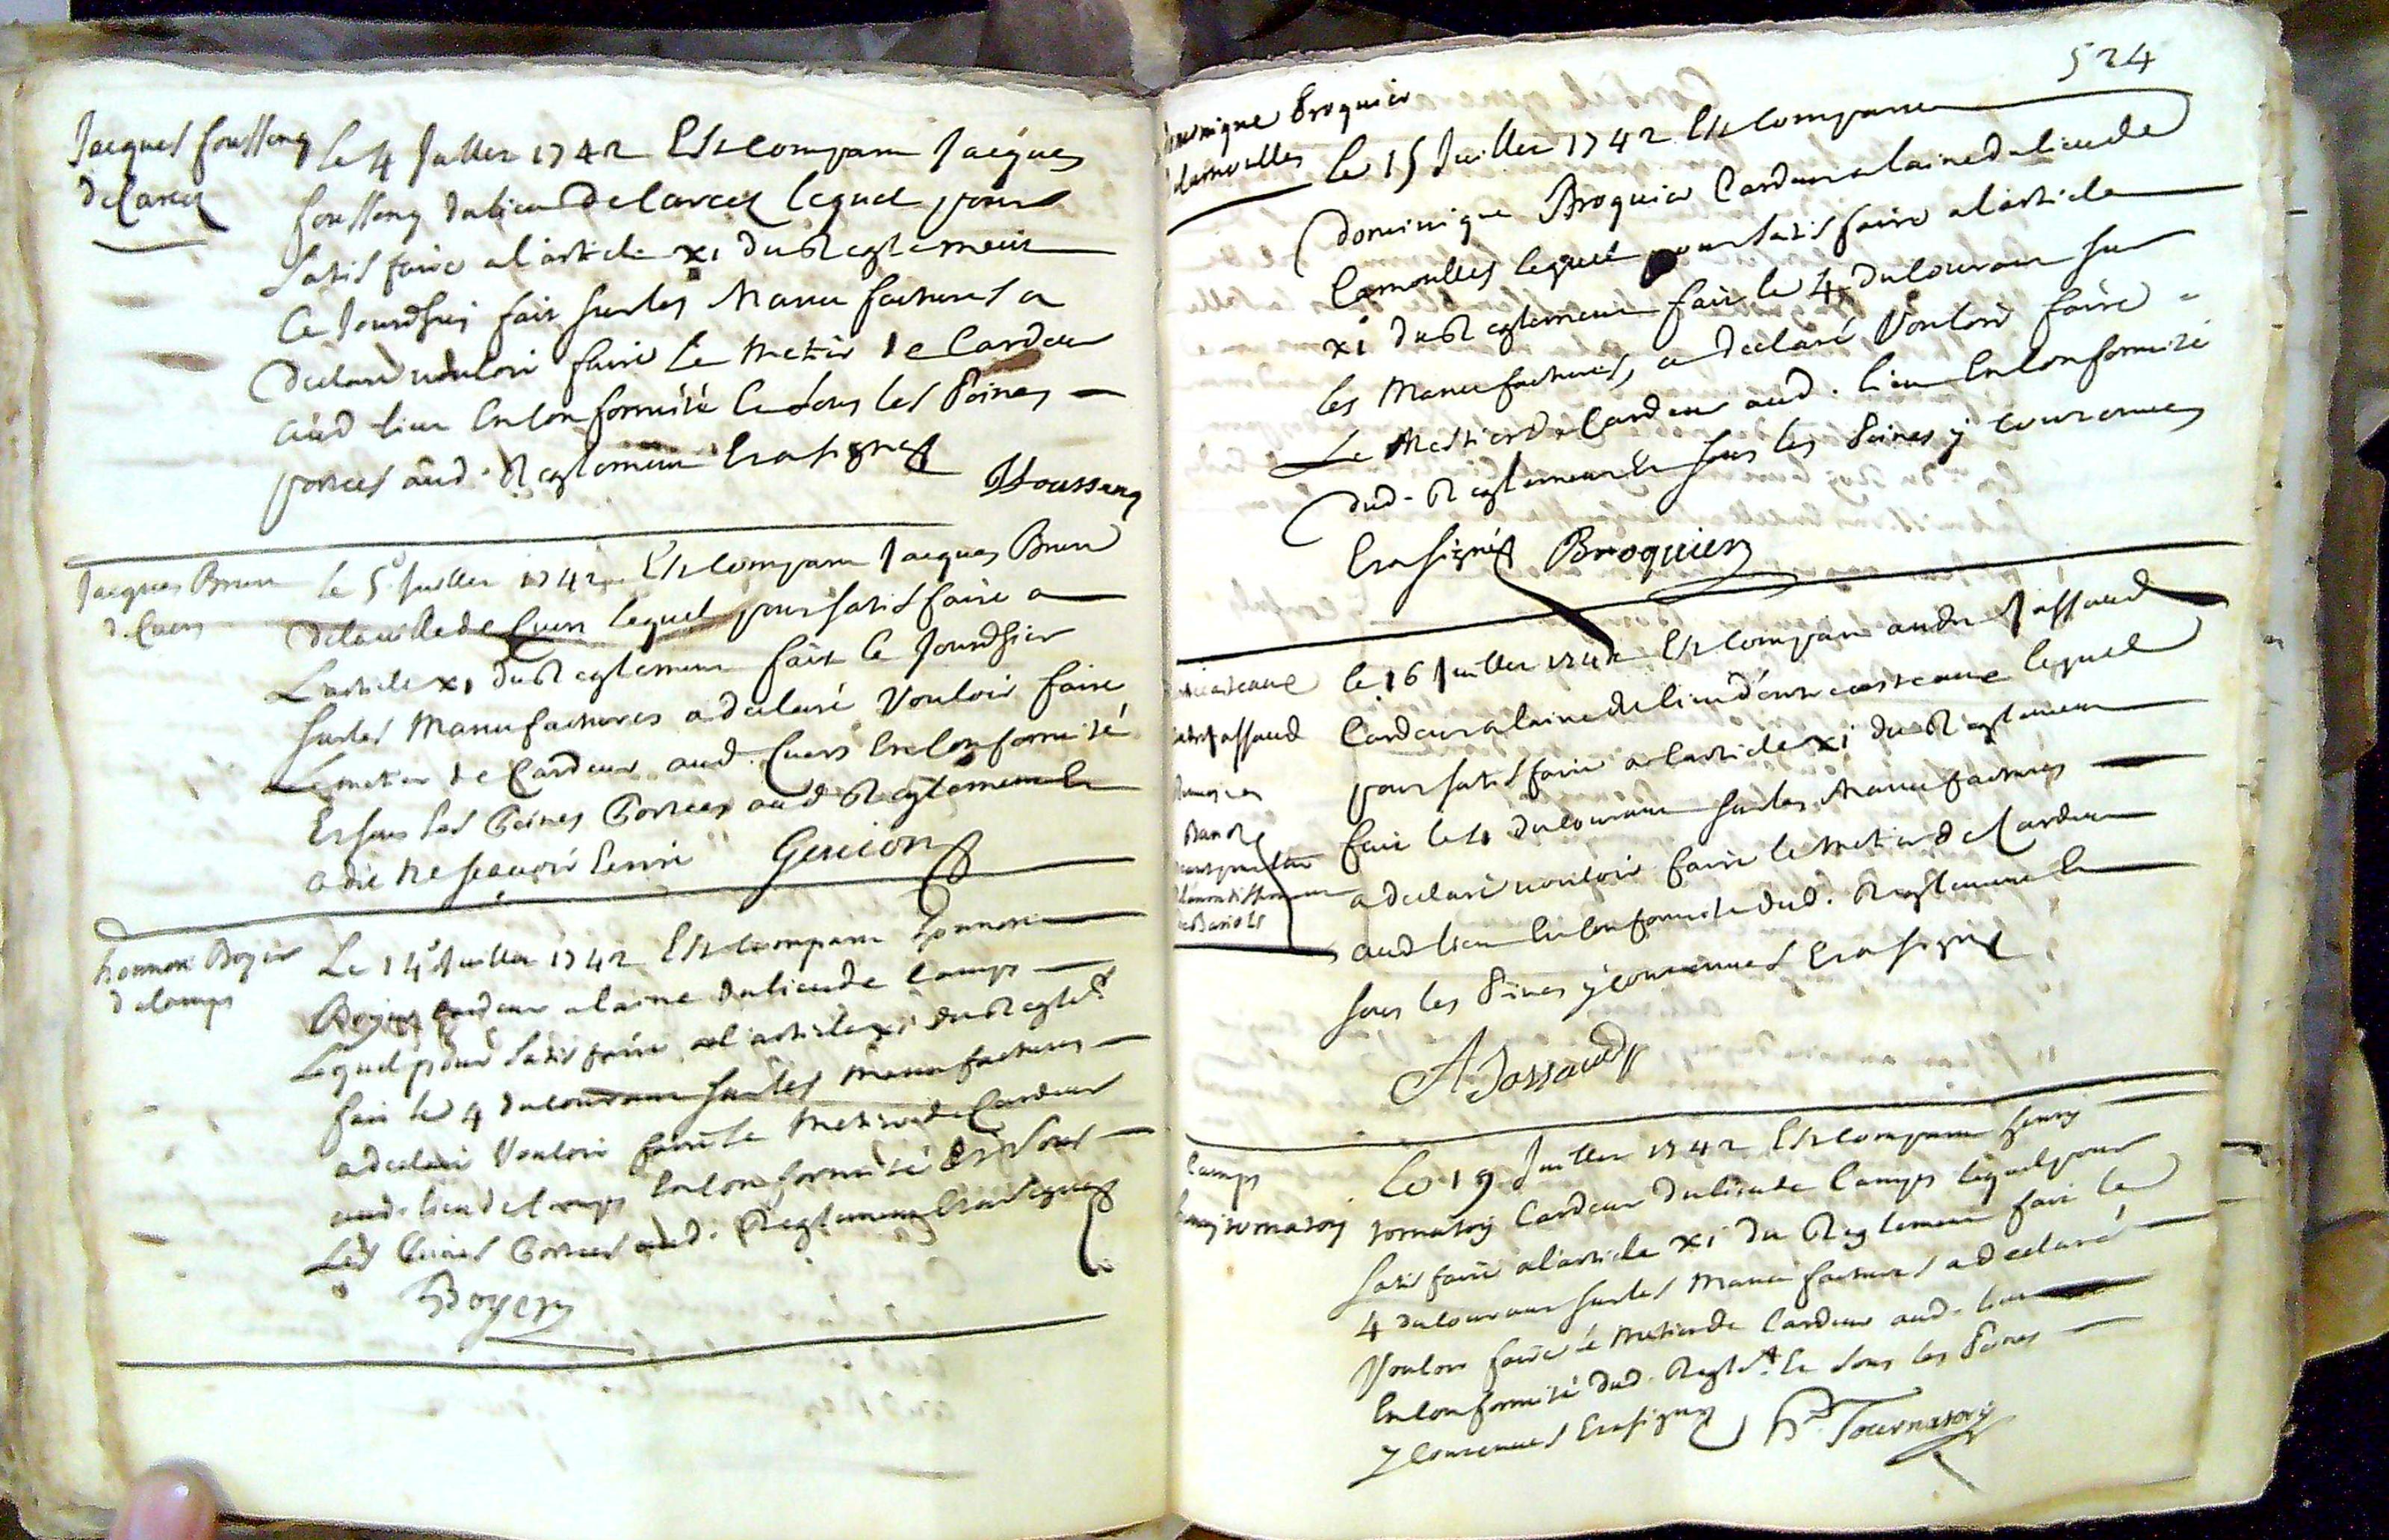 Jacques fousseng
de Carces
Le 4 Juillet 1742 Est comparu Jacques
fousseng du lieu de Carces lequel pour
satisfaire a l'article xi du Reglement
ce Jourdhuy fait sur les Manufactures a
declaré vouloir faire le metier de Cardeur
aud lieu En Conformité Et sous les Peines
portées aud. Reglement Et a signé
Jfousseng
Jacques Brun
de Cuers
le 5e Juillet 1742 Est comparu Jacques Brun
de la ville de Cuers lequel pour satisfaire a
L'article xi du Reglement fait le Jourdhier
sur les Manufactures a declaré Vouloir faire
Le metier de Cardeur aud. Cuers En Conformité
Et sous les Peines Portées aud Reglement Et
a dit ne scavoir Ecrire
honnoré Boyer
de Camps
Le 14e Juillet 1742 Est comparu honnoré
Boyer Cardeur a laine du lieu de Camps
Lequel pour satisfaire a l'article xi du Reglet
fait le 4 du courant sur les Manufactures
a declaré Vouloir faire le metier de Cardeur
aud. lieu de Camps En Conformité Et sous
Les Peines Portées aud. Reglement Et a signé
Boyer
524
Broquier
le 15 Juillet 1742 Est Comparu
dominique Broquier Cardeur a laine du lieu de
lequel pour satisfaire a l'article
xi du Reglement fait le 4 du Courant sur
les Manufactures, a declaré Vouloir faire
Le Mestier de Cardeur aud. lieu En Conformité
dud. Reglement Et sous les Peines y contenues
Et a signé Broquier
Jassaud
le 16 Juillet 1742 Est Comparu andré Jassaud
Cardeur a laine du lieu d'entrecasteaux lequel
pour satisfaire a l'article xi du Reglement
fait le 4 du Courant sur les Manufactures
a declaré vouloir faire le metier de Cardeur
aud lieu En Conformité dud. Reglement Et
sous les Peines y contenues Et a signé
A Jassaud
Camps
henry tornatory
Le 19 Juillet 1742 Est Comparu henry
tornatory Cardeur du lieu de Camps lequel pour
satisfaire a l'article xi du Reglement fait le
4 du Courant sur les Manufactures a declaré
Vouloir faire le metier de Cardeur aud. lieu
En Conformité dud. Reglet Et sous les Peines
y Contenues Et a signé
Tournatory